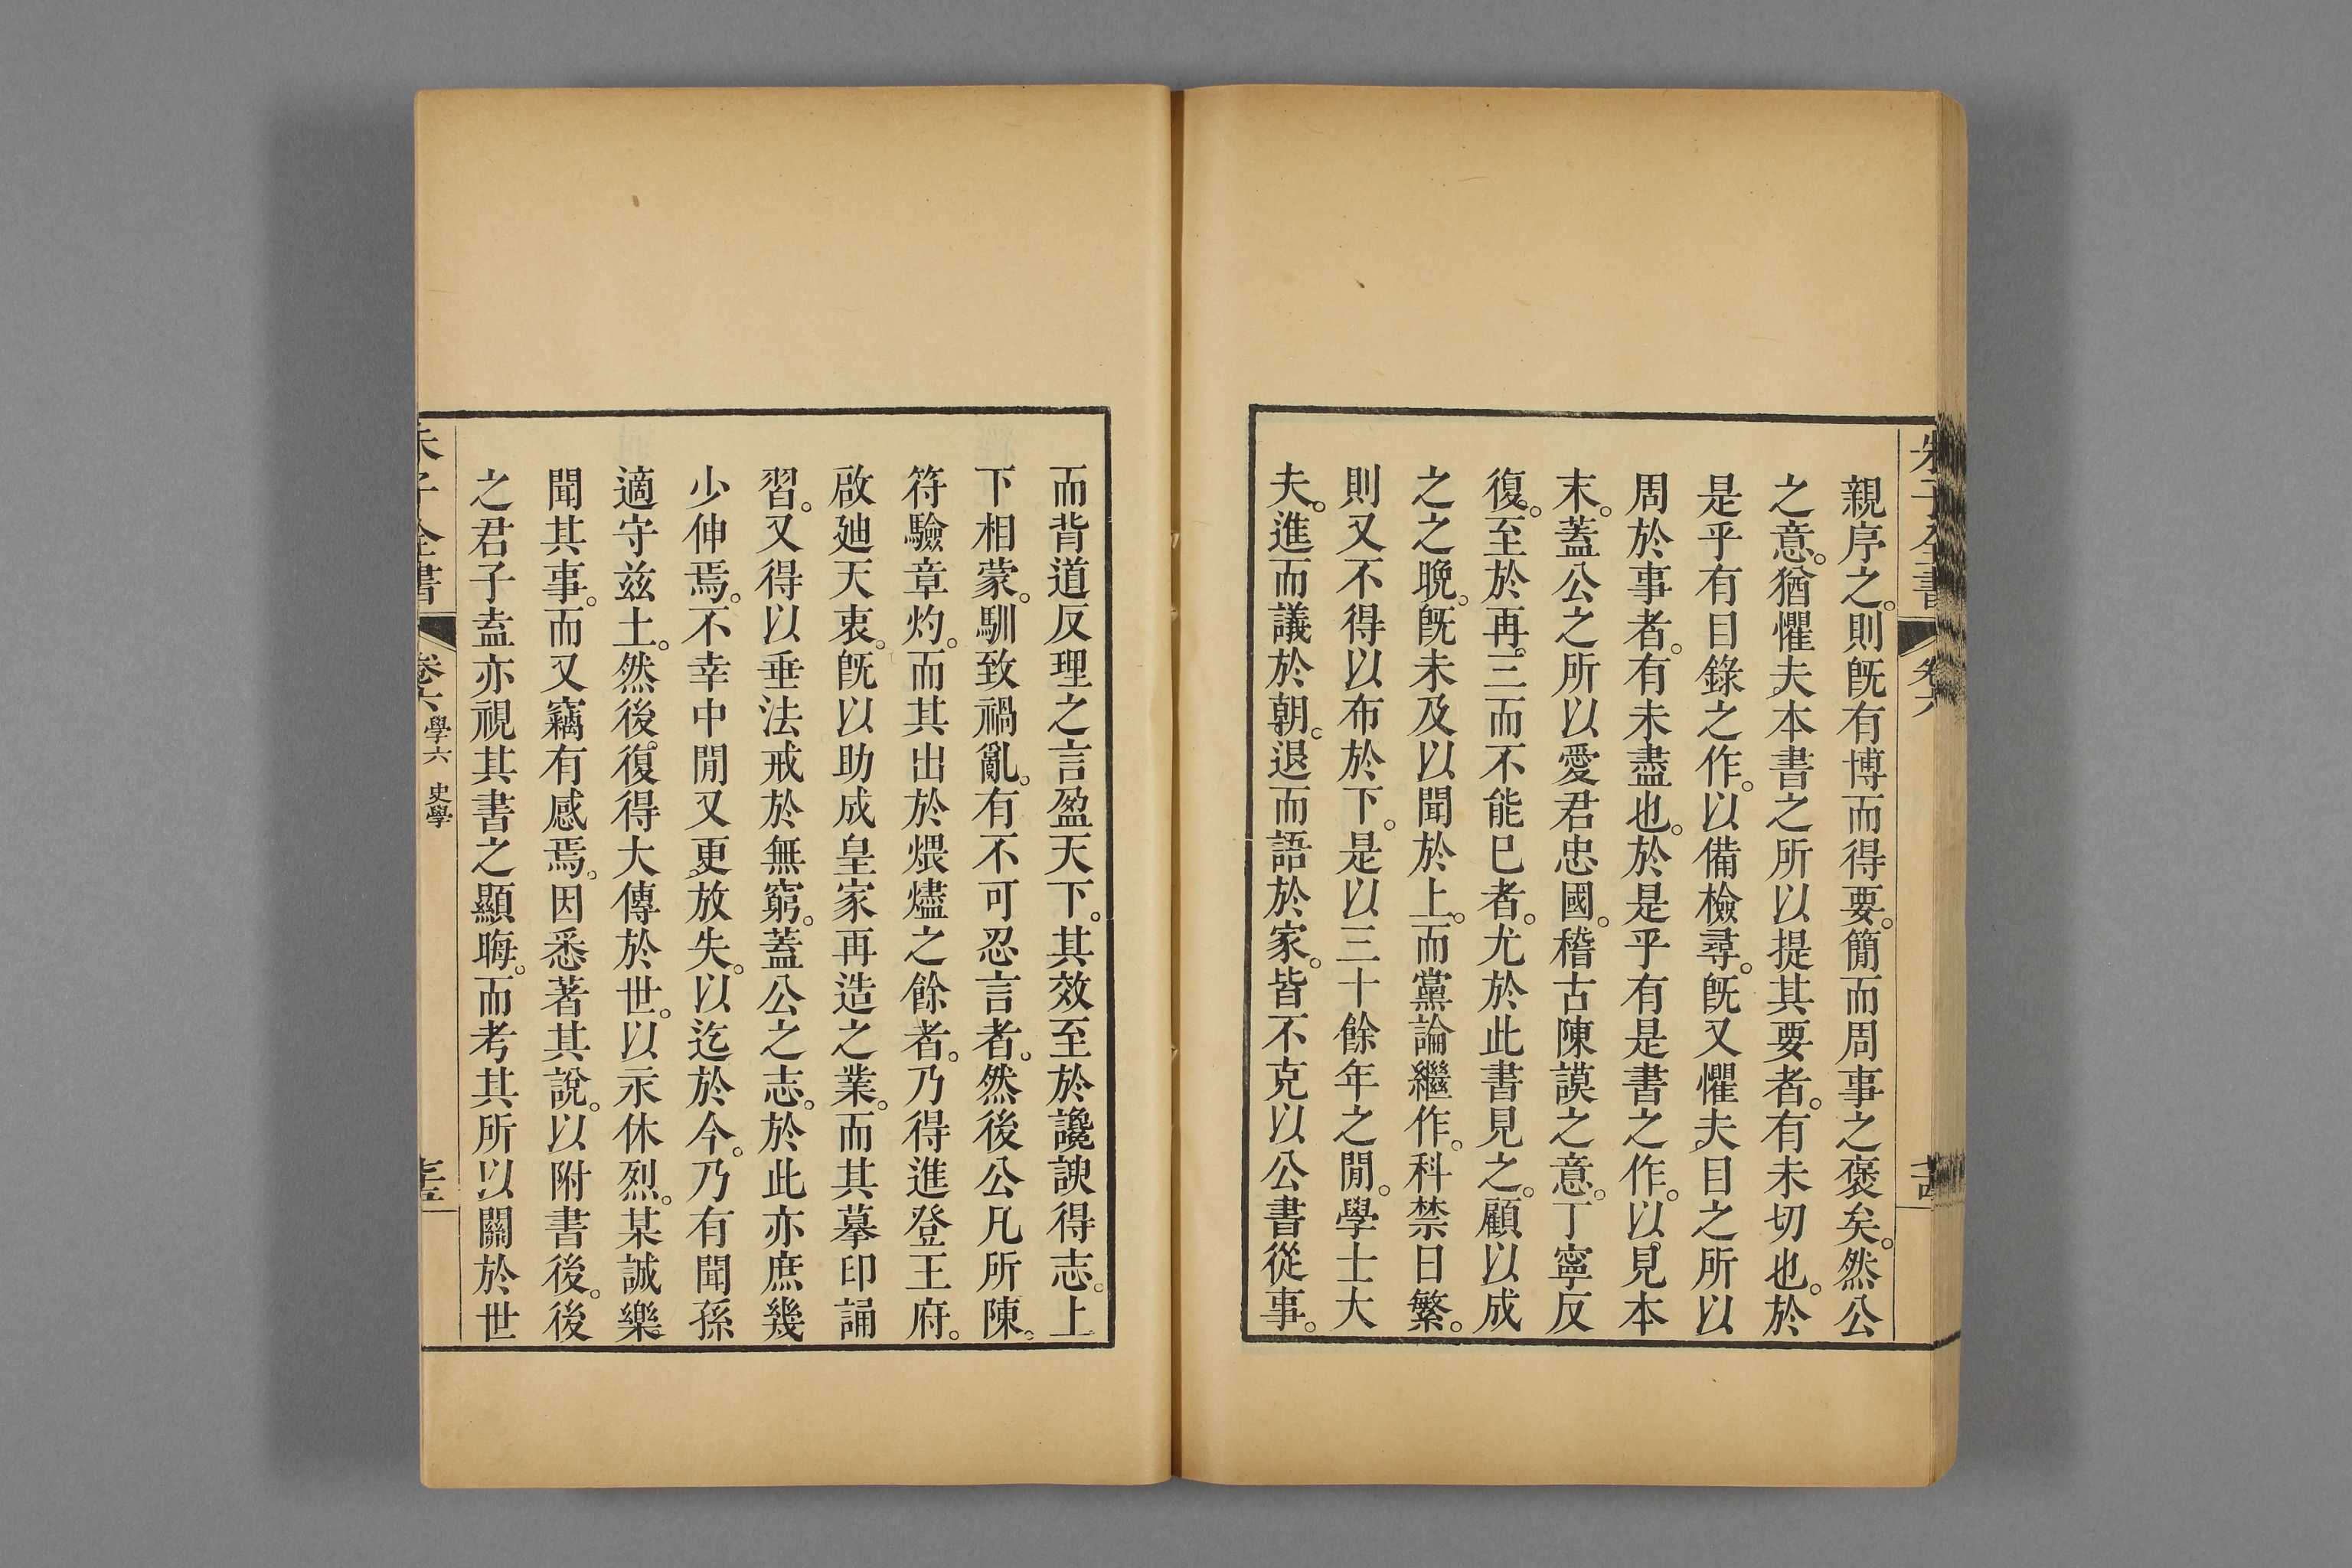 朱子全書 卷六
親序之。則旣有博而得要。簡而周事之褒矣。然公
之意。猶懼夫本書之所以提其要者。有未切也。於
是乎有目錄之作。以備檢尋。旣又懼夫目之所以
周於事者。有未盡也。於是乎有是書之作。以見本
末。蓋公之所以愛君忠國。稽古陳謨之意。丁寧反
復。至於再。三而不能巳者。尤於此書見之。顧以成
之之晩。旣未及以聞於上。而黨論繼作。科禁日繁。
則又不得以布於下。是以三十餘年之閒。學士大
夫。進而議於朝。退而語於家。皆不克以公書從事。
而背道反理之言盈天下。其效至於讒諛得志。上
下相蒙。馴致禍亂。有不可忍言者。然後公凡所陳。
符驗章灼。而其出於煨燼之餘者。乃得進登王府。
啟廸天衷。旣以助成皇家再造之業。而其摹印誦
習。又得以垂法戒於無窮。蓋公之志。於此亦庶幾
少伸焉。不幸中閒又更放失。以迄於今。乃有聞孫
適守兹土。然後。復得大傳於世。以永休烈。某誠樂
聞其事。而又竊有感焉。因悉著其說。以附書後。後
之君子盍亦視其書之顯晦。而考其所以關於世
朱子全書 卷六 學六 史學